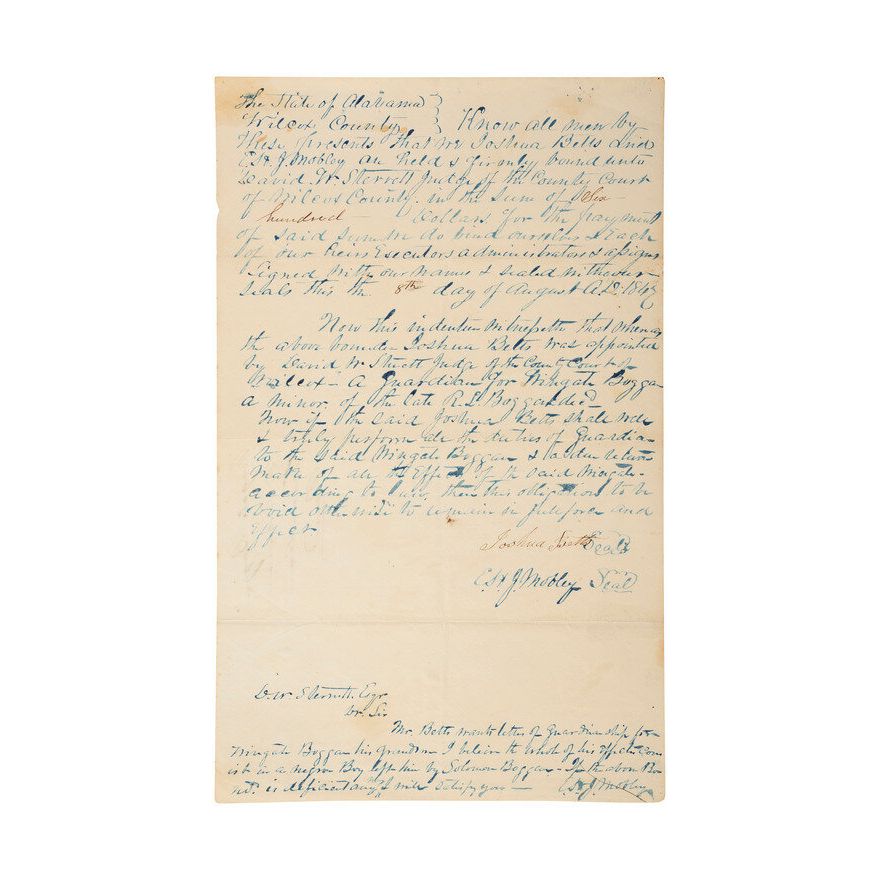 The State of Alabama }
Wilcox County } Know all men by
these presents that we Joshua Betts and
E. H. J. Mobley are held & firmly bound unto
David W. Sterrett Judge of the County Court
of Wilcox County. in the Sum of Six
hundred Dollars for the payment
of said sum we do bind ourselves & Each
of our heirs Executors administrators & assigns
Signed with our names & sealed with our
seals this the 8th day of August A.D. 184
Now this indenture witnesseth that whereas
the above bounden Joshua Betts was appointed
by David W Sterrett Judge of the County Court of
Wilcox - a Guardian for Wingate Boggan
a minor of the late R. L. Boggan decd
Now if the said Joshua Betts shall well
& truly perform all the duties of Guardian
to the said Wingate Boggan & a due return
make of all the Effects of the said Wingate
according to law, then this obligation to be
void otherwise to remain in full force and
Effect
Joshua Betts Seal
E. H. J. Mobley Seal
D. W. Sterrett. Esqr
Dr. Sir
Mr. Betts wants letters of Guardianship for
Wingate Boggan his Grandson I believe the whole of his effects con
sist in a negro Boy left him by Solomon Boggan - If the above Bo
nd. is deficient any I will satisfy you — E. H. J. Mobley